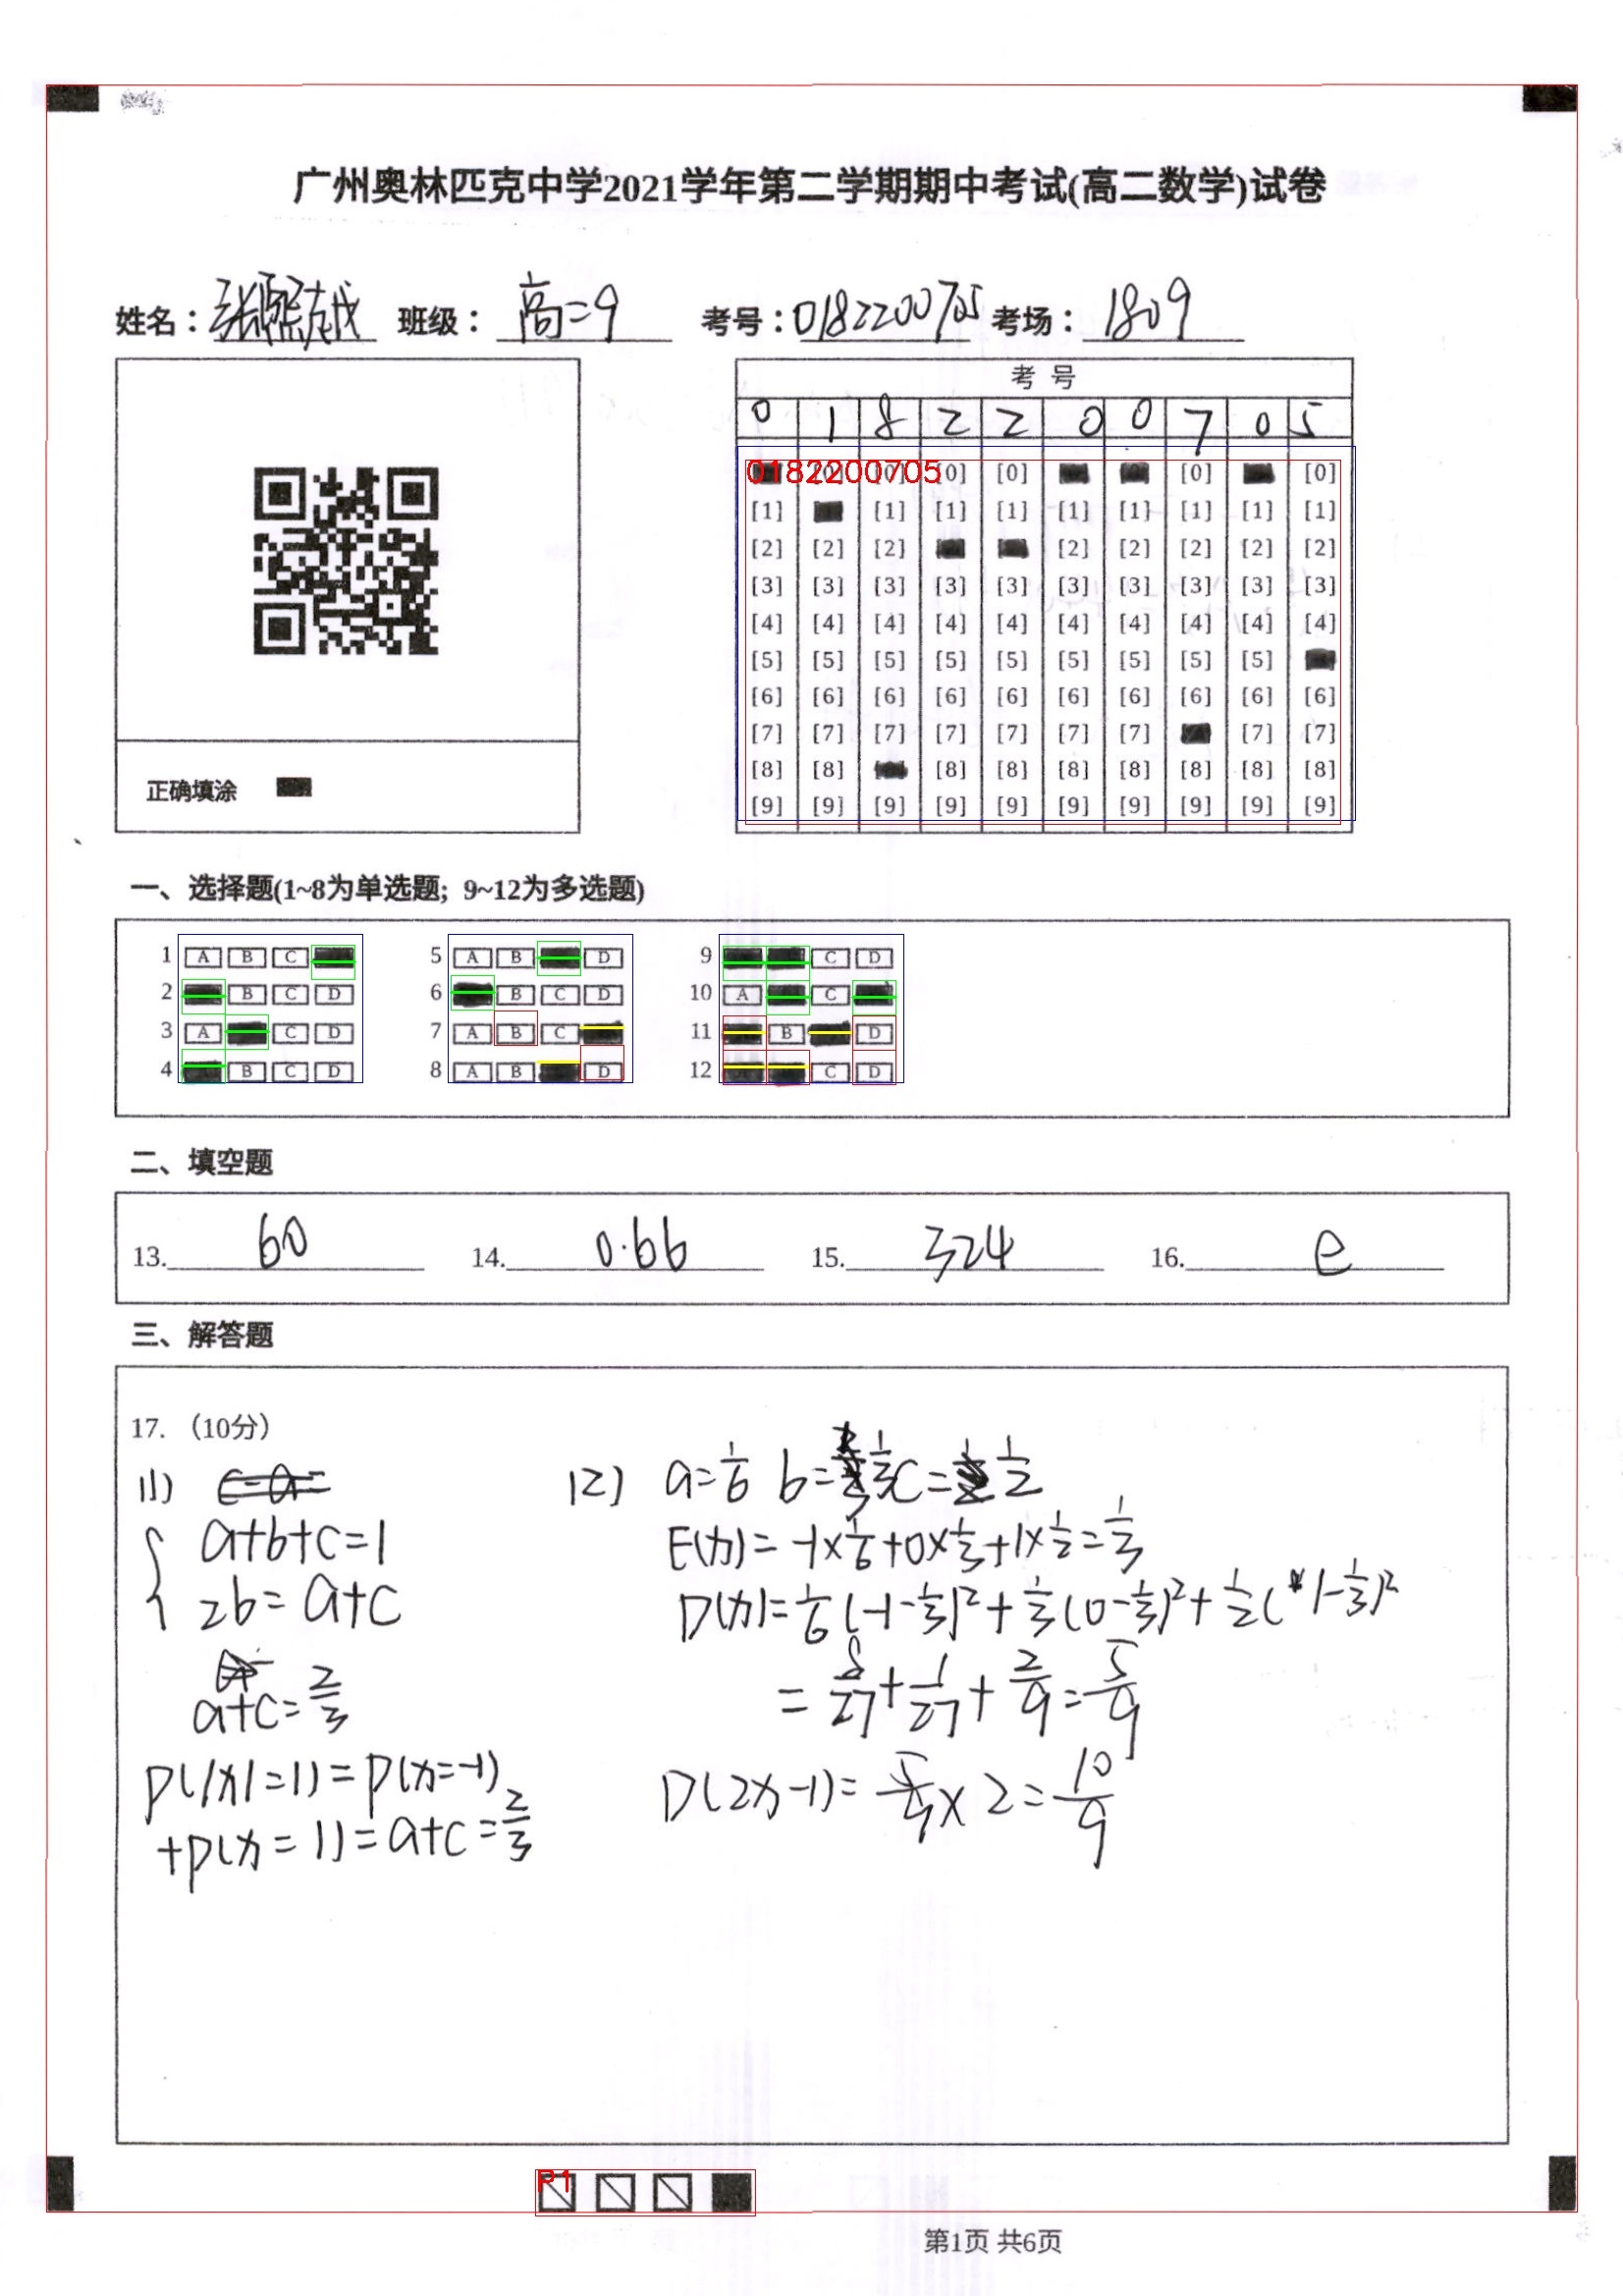 广州奥林匹克中学2021学年第二学期期中考试(高二数学)试卷
姓名：张熙越 班级：高二9 考号：0182200705 考场：1809
考 号
0 1 8 2 2 0 0 7 0 5
0182200705
[0] [0] [0] [0] [0] [0]
[1] [1] [1] [1] [1] [1] [1] [1] [1]
[2] [2] [2] [2] [2] [2] [2] [2]
[3] [3] [3] [3] [3] [3] [3] [3] [3] [3]
[4] [4] [4] [4] [4] [4] [4] [4] [4] [4]
[5] [5] [5] [5] [5] [5] [5] [5] [5]
[6] [6] [6] [6] [6] [6] [6] [6] [6] [6]
[7] [7] [7] [7] [7] [7] [7] [7] [7]
[8] [8] [8] [8] [8] [8] [8] [8] [8]
[9] [9] [9] [9] [9] [9] [9] [9] [9] [9]
正确填涂
一、选择题(1~8为单选题; 9~12为多选题)
1 A B C 5 A B D 9 C D
2 B C D 6 B C D 10 A C
3 A C D 7 A B C 11 B D
4 B C D 8 A B D 12 C D
二、填空题
13. 60 14. 0.66 15. 324 16. e
三、解答题
17. （10分）
(1)
a+b+c=1
2b=a+c
a+c=2/3
P(|x|=1)=P(x=-1)
+P(x=1)=a+c=2/3
(2) a=1/6 b=1/3 c=1/2
E(x)=-1×1/6+0×1/3+1×1/2=1/3
D(x)=1/6(-1-1/3)²+1/3(0-1/3)²+1/2(1-1/3)²
=8/27+1/27+2/9=5/9
D(2x-1)=5/9×2=10/9
P1
第1页 共6页